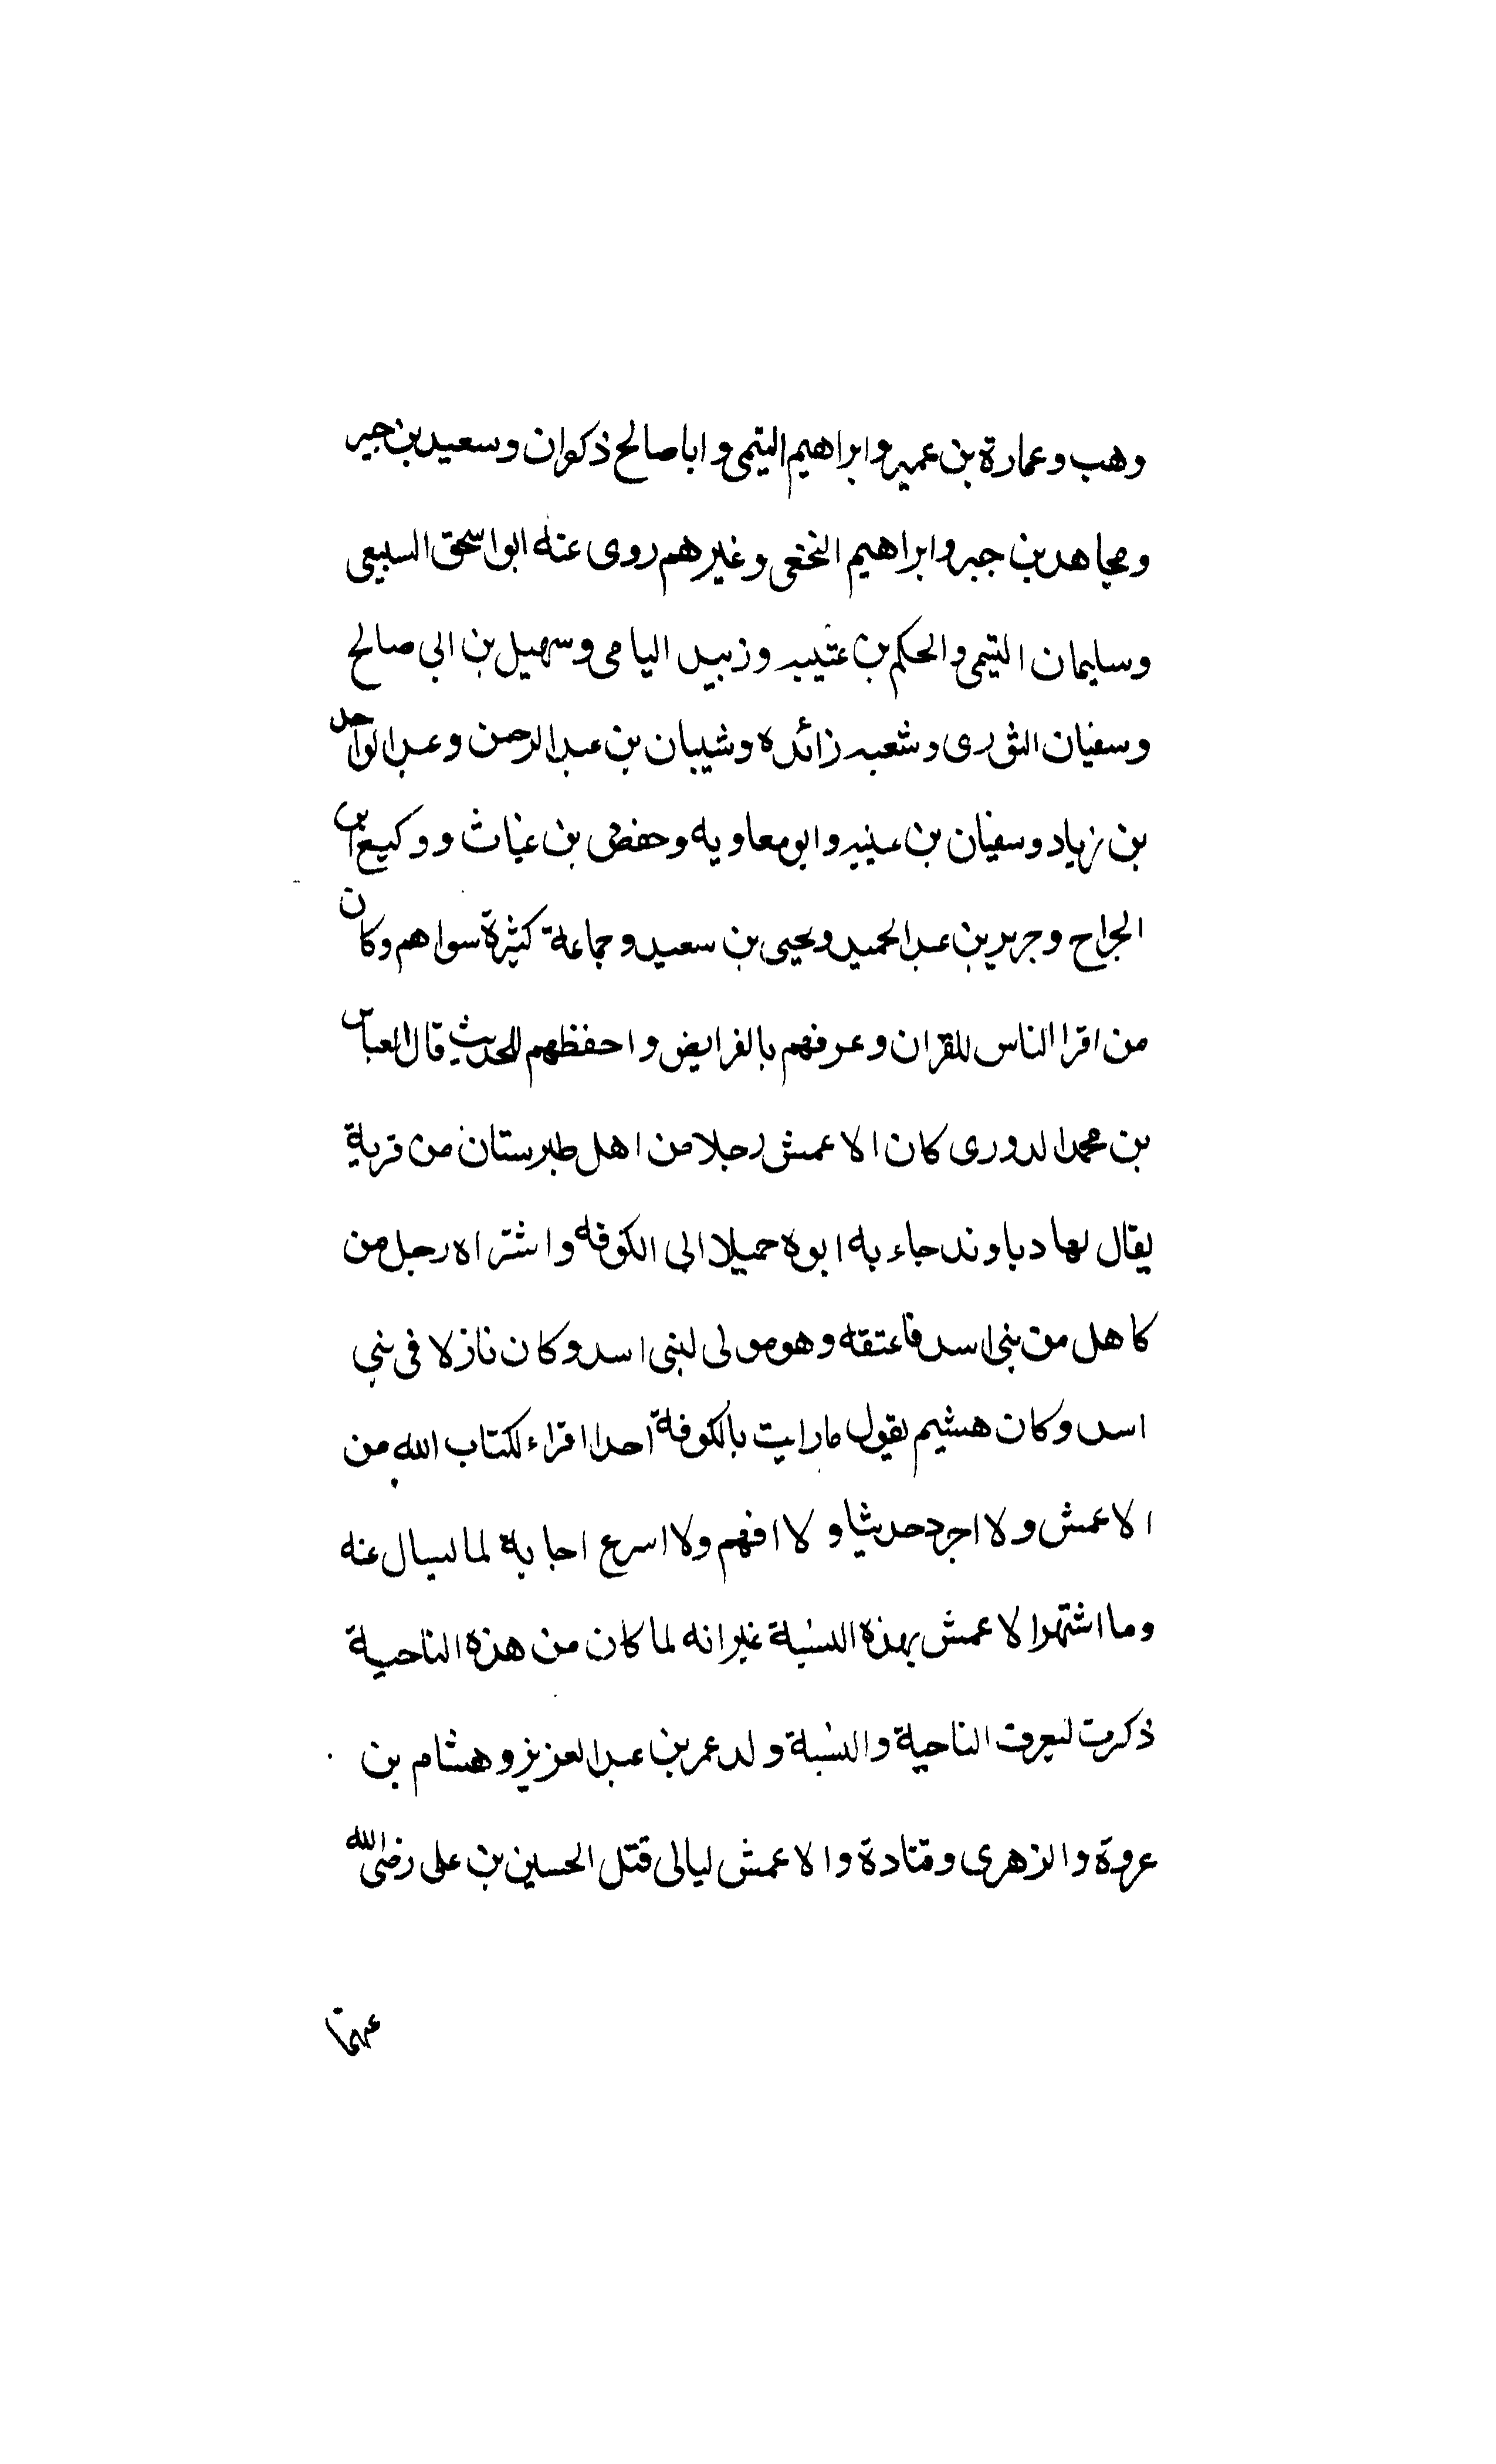 وهب وعمارة بن عمير وابراهيم التيمى و ابا صالح ذكوان وسعيد بن جبير
ومجاهد بن جبر وابراهيم النخعى وغيرهم روى عنه ابو اسحق السبيعى
وسليمان التيمى والحكم بن عتيبه وزبيد اليامى وسهيل بن ابى صالح
وسفيان الثورى وشعبه زائده وشيبان بن عبد الرحمن وعبد الواحد
بن زياد وسفيان بن عيينه وابو معاويه وحفص بن غياث و وكيع ابن
الجراح وجرير بن عبد الحميد ويحيى بن سعيد وجماعة كثيرة سواهم وكان
من اقرا الناس للقران وعرفهم بالفرايض واحفظهم للحديث قال العباس
بن محمد الدورى كان الاعمش رجلا من اهل طبرستان من قرية
يقال لها دباوند جاء به ابوه حميلا الى الكوفه واشتراه رجل من
كاهل من بنى اسد فاعتقه وهو مولى لبنى اسد وكان نازلا فى بنى
اسد وكان هشيم يقول ما رايت بالكوفة احدا اقراء لكتاب الله من
الاعمش ولا اجود حديثا ولا افهم ولا اسرع اجابة لما يسال عنه
وما اشتهر الاعمش بهذه النسبة غير انه لما كان من هذه الناحية
ذكرت ليعرف الناحية والنسبة ولد عمر بن عبد العزيز وهشام بن
عروة والزهرى وقتادة والاعمش ليالى قتل الحسين بن على رضى الله
عنهما